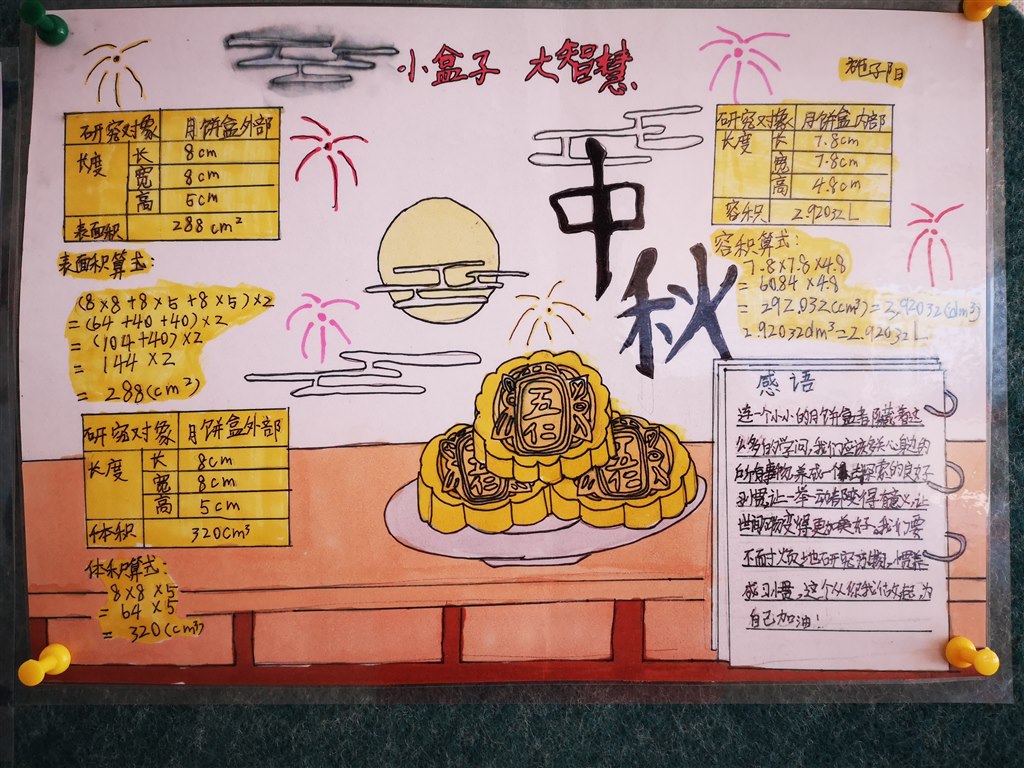 小盒子 大智慧
子阳
研究对象 月饼盒外部
长度 长 8cm
宽 8cm
高 5cm
表面积 288cm²
表面积算式:
(8×8+8×5+8×5)×2
=(64+40+40)×2
=(104+40)×2
= 144×2
= 288(cm²)
研究对象 月饼盒外部
长度 长 8cm
宽 8cm
高 5cm
体积 320cm³
体积算式:
8×8×5
= 64×5
= 320(cm³)
中秋
五仁
五仁
五仁
研究对象 月饼盒内部
长度 长 7.8cm
宽 7.8cm
高 4.8cm
容积 2.92032L
容积算式:
7.8×7.8×4.8
= 60.84×4.8
= 292.032(cm³)=2.92032(dm³)
2.92032dm³=2.92032L
感语
连一个小小的月饼盒者隐藏着这
么多的学问,我们应该关心身边的
所有事物,养成一个去探索的良好
习惯,让一举一动有变得有意义,让
世间万物变得更加美好,我们要
不耐烦地研究万物,惯养
成习惯,这个从你我他做起,为
自己加油!